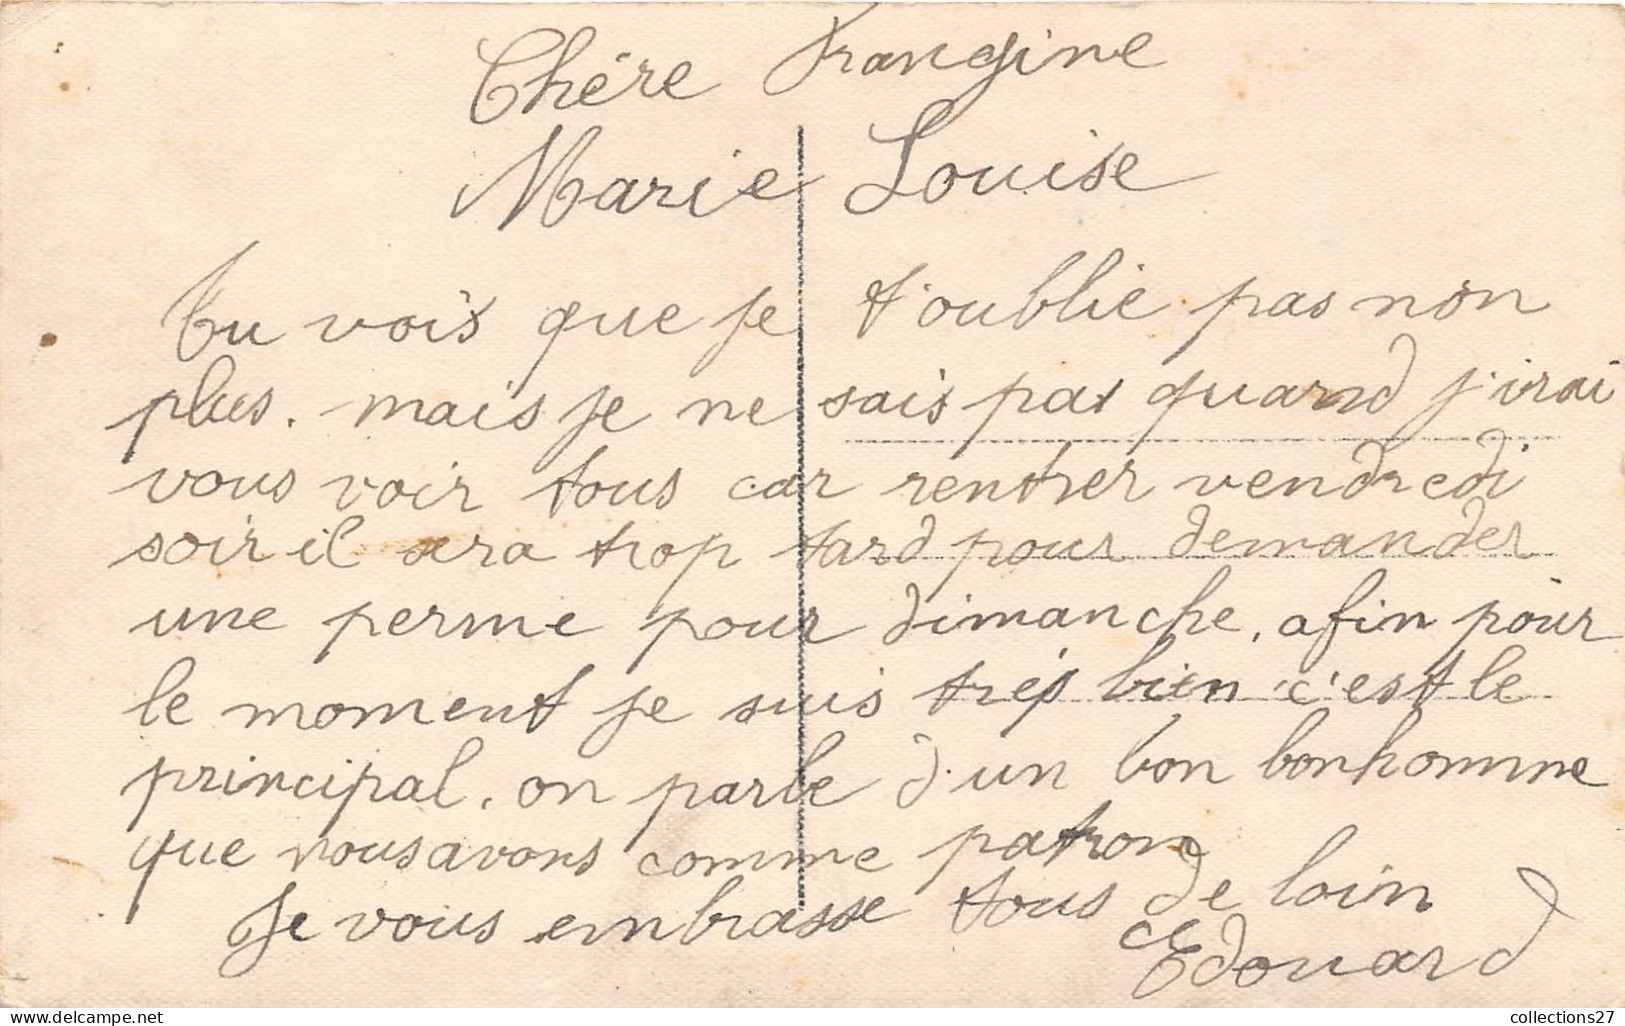 Chére Frangine
Marie Louise
Tu vois que je t'oublie pas non
plus. mais je ne sais pas quand j'irai
vous voir tous car rentrer vendredi
soir il sera trop tard pour demander
une perme pour dimanche, afin pour
le moment je suis trés bien c'est le
principal. on parle d'un bon bonhomme
que nous avons comme patron
Je vous embrasse tous de loin
Edouard
collections27